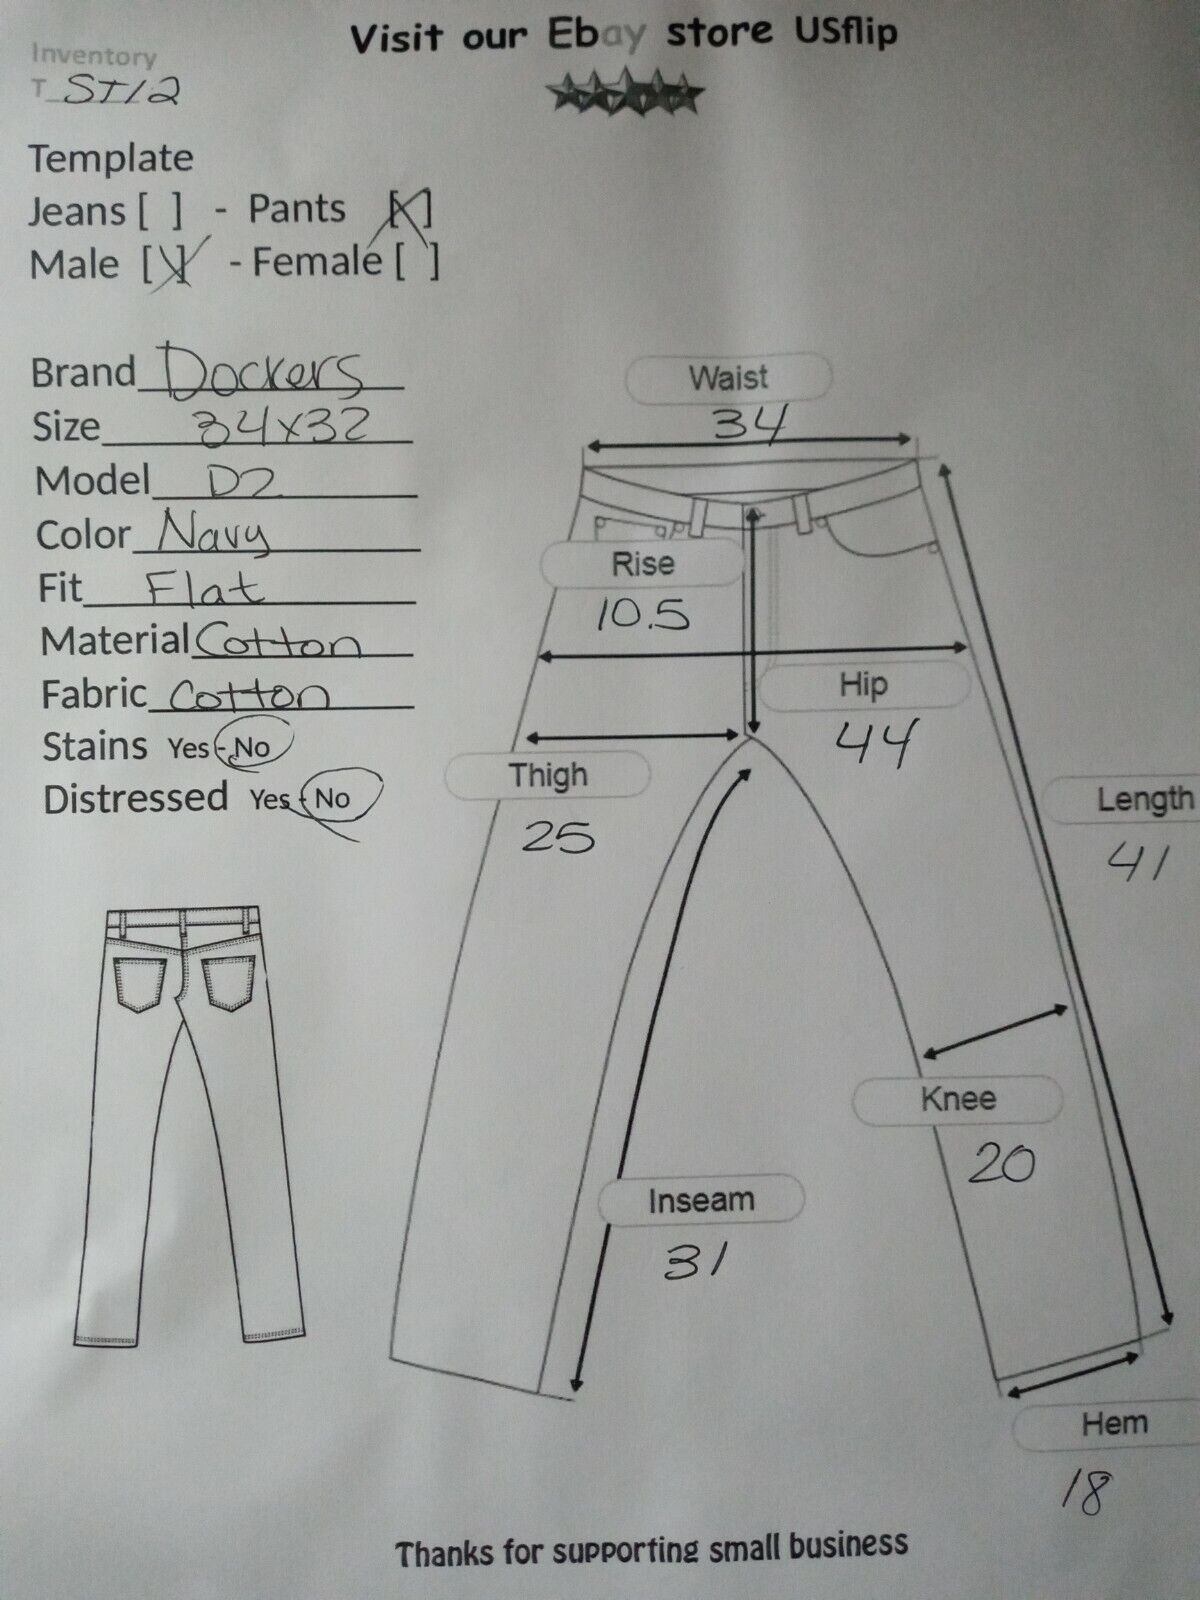 Visit our Ebay store USflip
Inventory
T_ST12
Template
Jeans [ ] - Pants [X]
Male [X] - Female [ ]
Brand Dockers
Size 34x32
Model D2
Color Navy
Fit Flat
Material Cotton
Fabric Cotton
Stains Yes - No
Distressed Yes - No
Waist
34
Rise
10.5
Hip
44
Thigh
25
Length
41
Knee
20
Inseam
31
Hem
18
Thanks for supporting small business